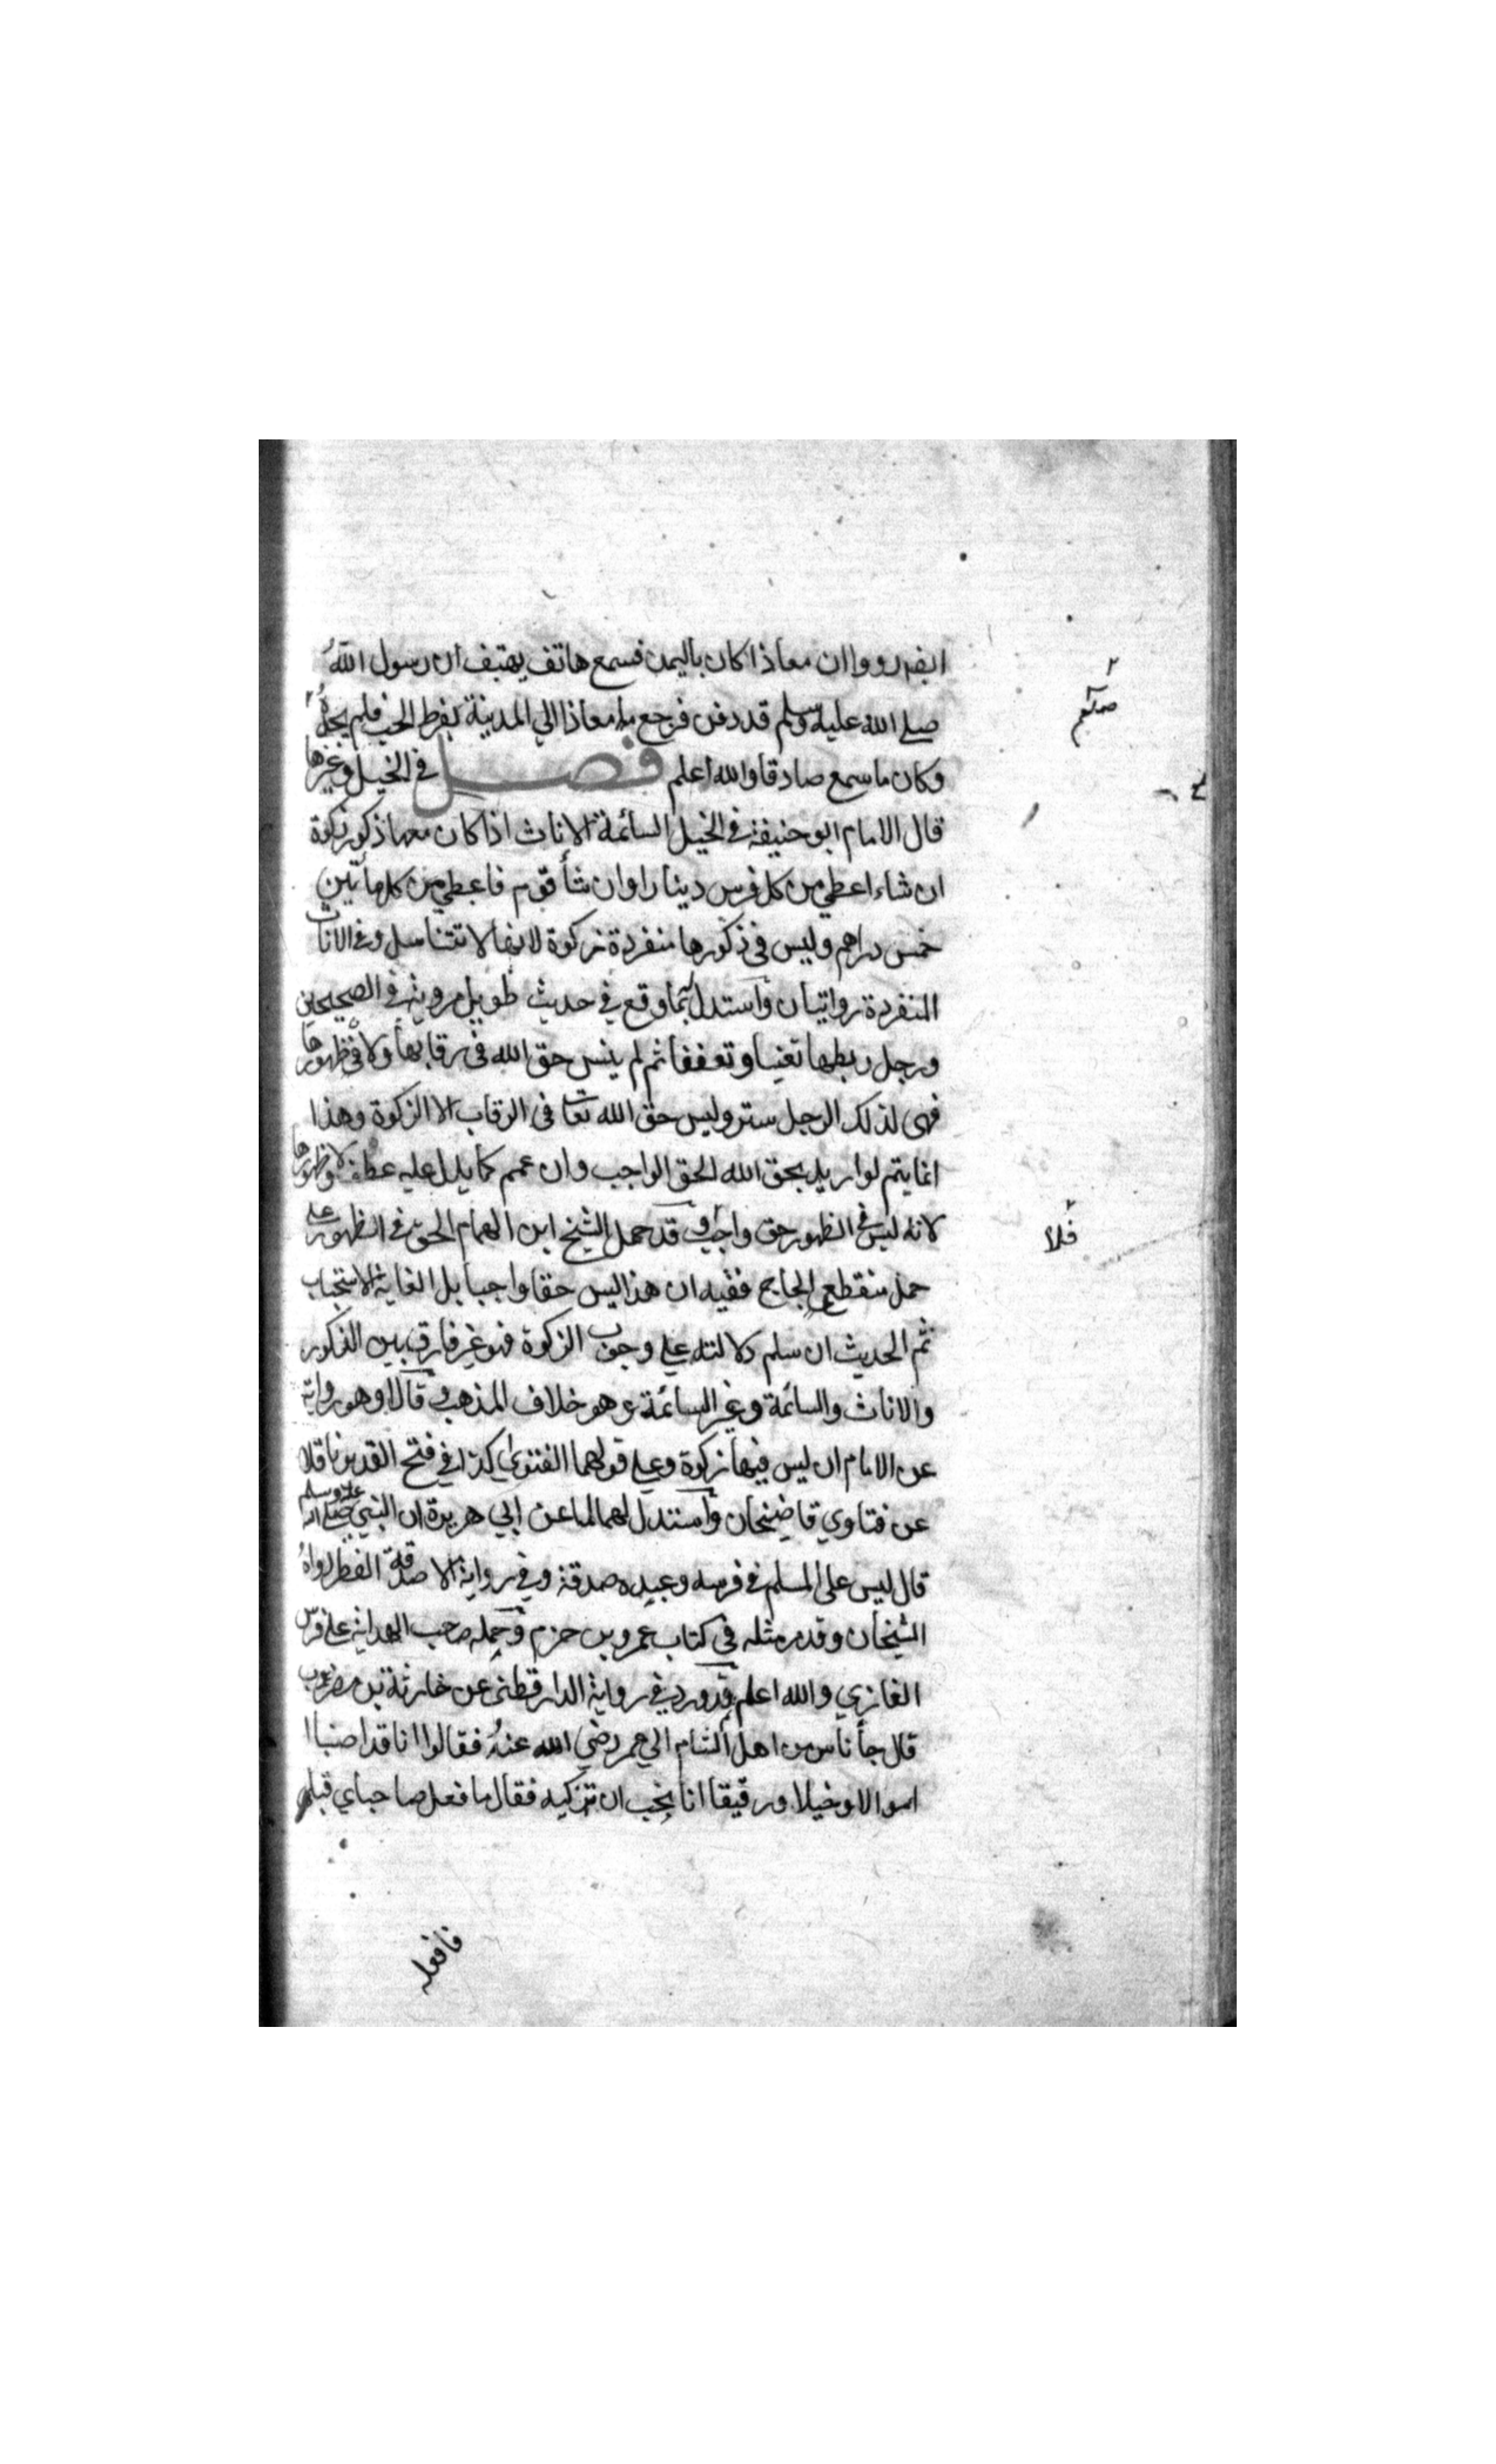 ايضا رووا ان معاذا كان باليمن فسمع هاتف يهتف ان رسول الله
صلى الله عليه وسلم قد دفن فرجع معاذا الي المدينة بفرط الحب فلم يجده
وكان ما سمع صادقا والله اعلم فصل في الخيل وغيرها
قال الامام ابو حنيفة في الخيل السائمة الاناث اذا كان معها ذكور زكوة
ان شاء اعطي من كل فرس دينارا وان شأ قوم فاعطي من كل مأتين
خمس دراهم وليس في ذكورها منفردة زكوة لانها لا تتناسل وفي الاناث
المنفردة روايتان واستدل بما وقع في حديث طويل مروية في الصحيحين
ورجل ربطها تغنيا وتعففا ثم لم ينس حق الله في رقابها ولا في ظهورها
فهي لذلك الرجل ستر وليس حق الله تعا في الرقاب الا الزكوة وهذا
انما يتم لو اريد بحق الله الحق الواجب وان عمم كما يدل عليه عطف ولا ظهورها
لانه ليس في الظهور حق واجب وقد حمل الشيخ ابن الهمام الحق في الظهور على
حمل منقطع الحاج ففيه ان هذا ليس حقا واجبا بل الغاية الاستحباب
ثم الحديث ان سلم دلالته على وجوب الزكوة فهو غير فارق بين الذكور
والاناث والسائمة وغير السائمة وهو خلاف المذهب وقالا وهو رواية
عن الامام ان ليس فيها زكوة وعلى قولهما الفتوي كذا في فتح القدير ناقلا
عن فتاوي قاضيخان واستدل لهما لما عن ابي هريرة ان النبي صلى الله عليه وسلم
قال ليس على المسلم في فرسه وعبده صدقة وفي رواية الا صدقة الفطر رواه
الشيخان وقد مر مثله في كتاب عمرو بن حزم وحمله صاحب الهداية على فرس
الغازي والله اعلم وقد ورد في رواية الدارقطني عن خارثة بن مضروب
قال جأ ناس من اهل الشام الي عمر رضي الله عنه فقالوا انا قد اصبنا
اموالا وخيلا ورقيقا انا نحب ان تزكيه فقال ما فعل صاحباي قبلي
فافعله
فلا